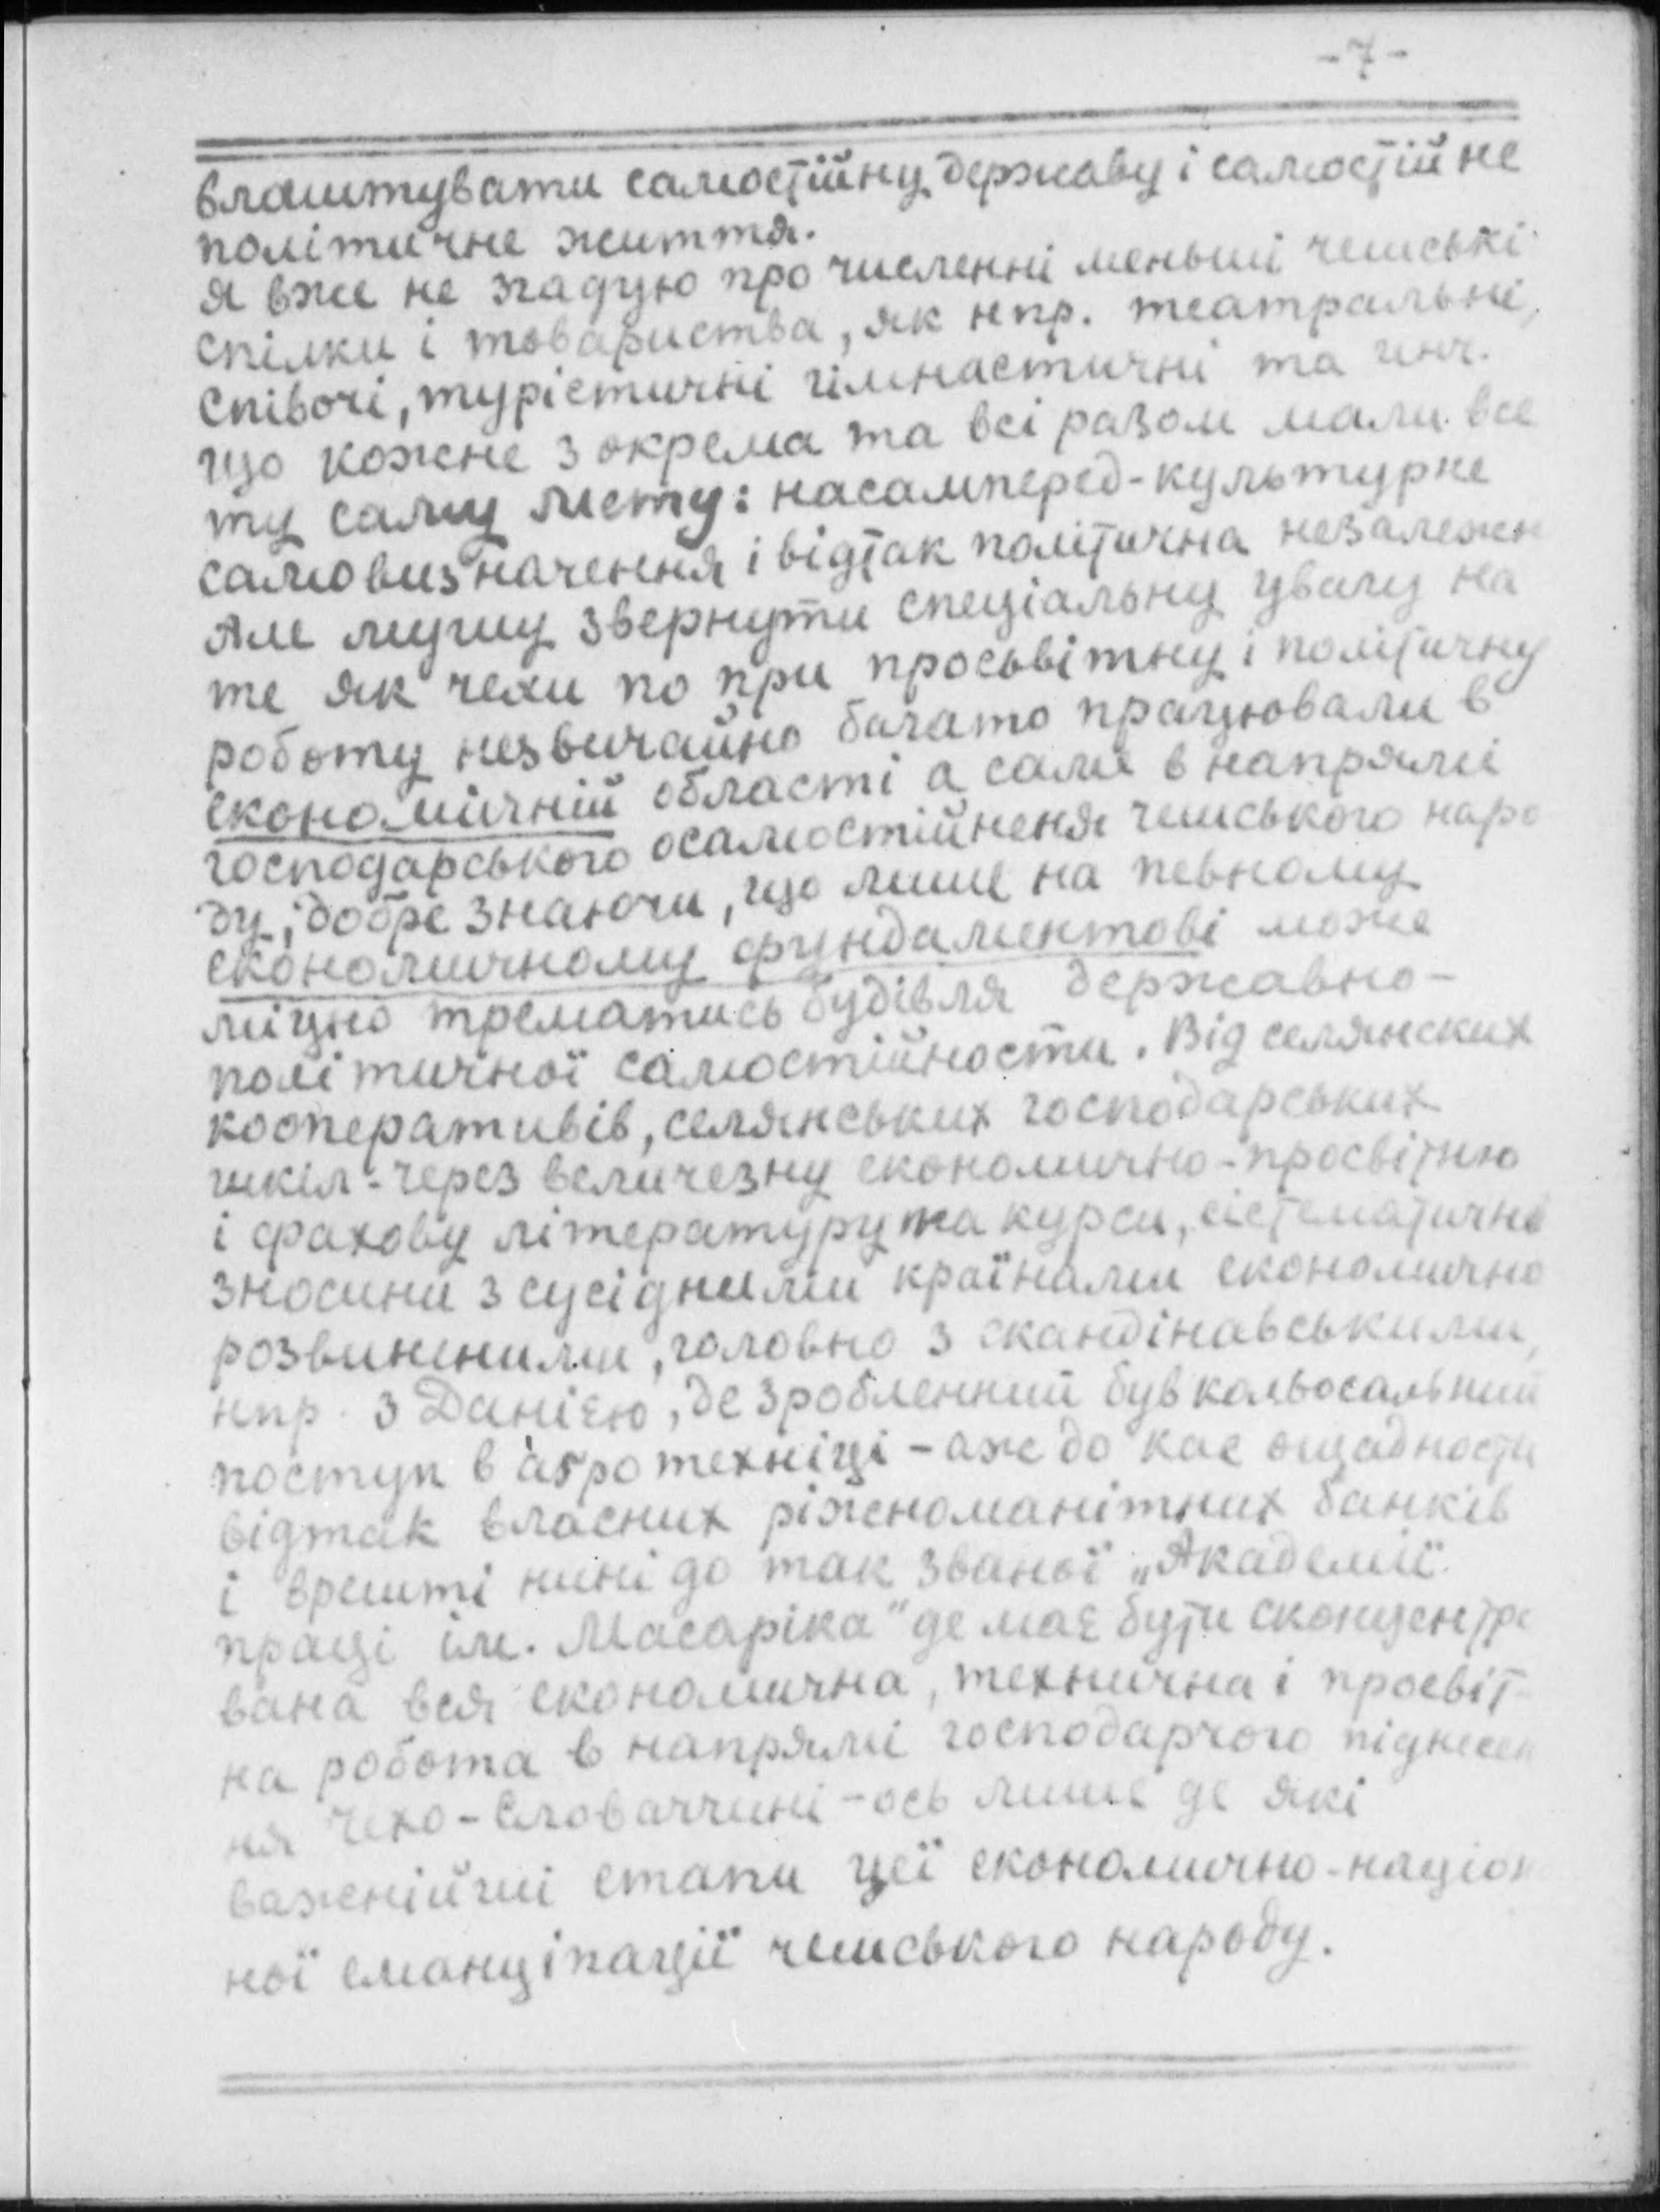 -7-
влаштувати самостійну державу і самостійне
політичне життя.
Я вже не згадую про численні меньші чешські
спілки і товариства, як нпр. театральні,
співочі, турістичні гімнастичні та инч.
що кожне зокрема та всі разом мали все
ту саму мету: насамперед-культурне
самовизначення і відтак політична незалежн
Але мушу звернути спеціальну увагу на
те як чехи по при просьвітну і політичну
роботу незвичайно багато працювали в
економічній області а саме в напрямі
господарського осамостійненя чешського наро
ду, добре знаючи, що лише на певному
економичному фундаментові може
міцно трематись будівля державно-
політичної самостійности. Від селянских
кооперативів, селянських господарських
шкіл-через величезну економично-просвітню
і фахову літературу та курси, сістематичне
зносини з сусідними країнами економично
розвиненими, головно з скандінавськими,
нпр. з Данією, де зробленний був кольосальний
поступ в аґротехніці - аж до кас ощадности
відтак власних ріжноманітних банків
і врешті нині до так званої „Академії
праці ім. Масаріка" де має бути сконцентро
вана вся економична, технична і просвіт-
на робота в напрямі господарчого піднесен
ня Чехо-Словаччині - ось лише де які
важнійші етапи цеї економично-націон
ної еманціпації чешського народу.